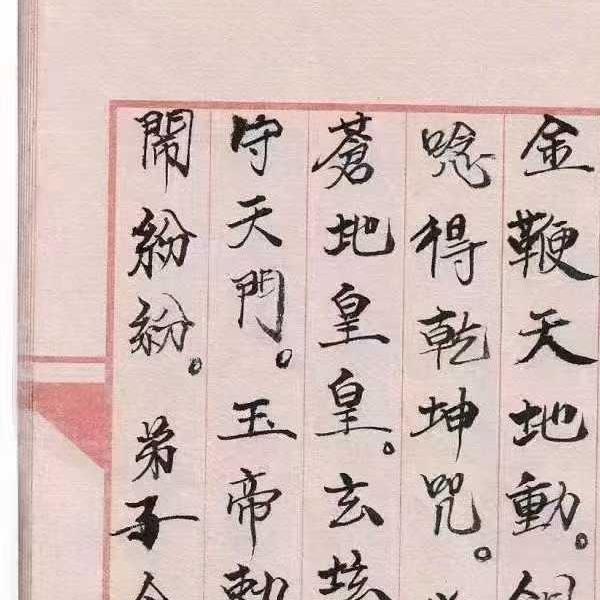 金鞭天地動。
唸得乾坤咒。
蒼地皇皇。玄壇
守天門。玉帝勅
鬧紛紛。弟子今